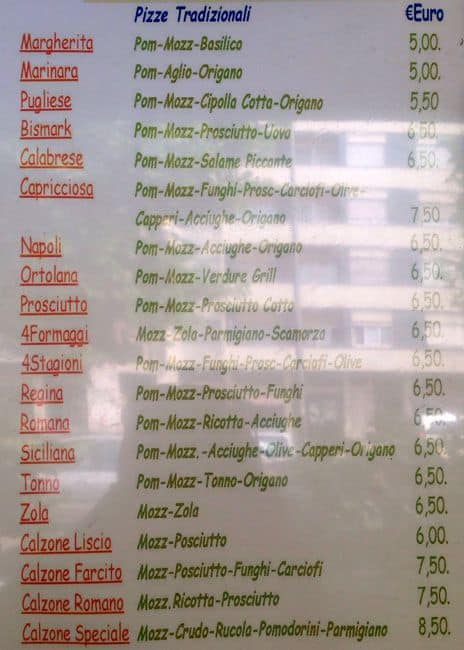 Pizze Tradizionali €Euro
Margherita Pom-Mozz-Basilico 5,00.
Marinara Pom-Aglio-Origano 5,00.
Pugliese Pom-Mozz-Cipolla Cotta-Origano 5,50
Bismark Pom-Mozz-Prosciutto-Uova 6,50.
Calabrese Pom-Mozz-Salame Piccante 6,50.
Capricciosa Pom-Mozz-Funghi-Prosc-Carciofi-Olive-
Capperi-Acciughe-Origano 7,50
Napoli Pom-Mozz-Acciughe-Origano 6,50.
Ortolana Pom-Mozz-Verdure Grill 6,50.
Prosciutto Pom-Mozz-Prosciutto Cotto 6,50.
4Formaggi Mozz-Zola-Parmigiano-Scamorza 6,50.
4Stagioni Pom-Mozz-Funghi-Prosc-Carciofi-Olive 6,50.
Regina Pom-Mozz-Prosciutto-Funghi 6,50.
Romana Pom-Mozz-Ricotta-Acciughe 6,50.
Siciliana Pom-Mozz.-Acciughe-Olive-Capperi-Origano 6,50.
Tonno Pom-Mozz-Tonno-Origano 6,50.
Zola Mozz-Zola 6,50.
Calzone Liscio Mozz-Posciutto 6,00.
Calzone Farcito Mozz-Posciutto-Funghi-Carciofi 7,50.
Calzone Romano Mozz.Ricotta-Prosciutto 7,50.
Calzone Speciale Mozz-Crudo-Rucola-Pomodorini-Parmigiano 8,50.